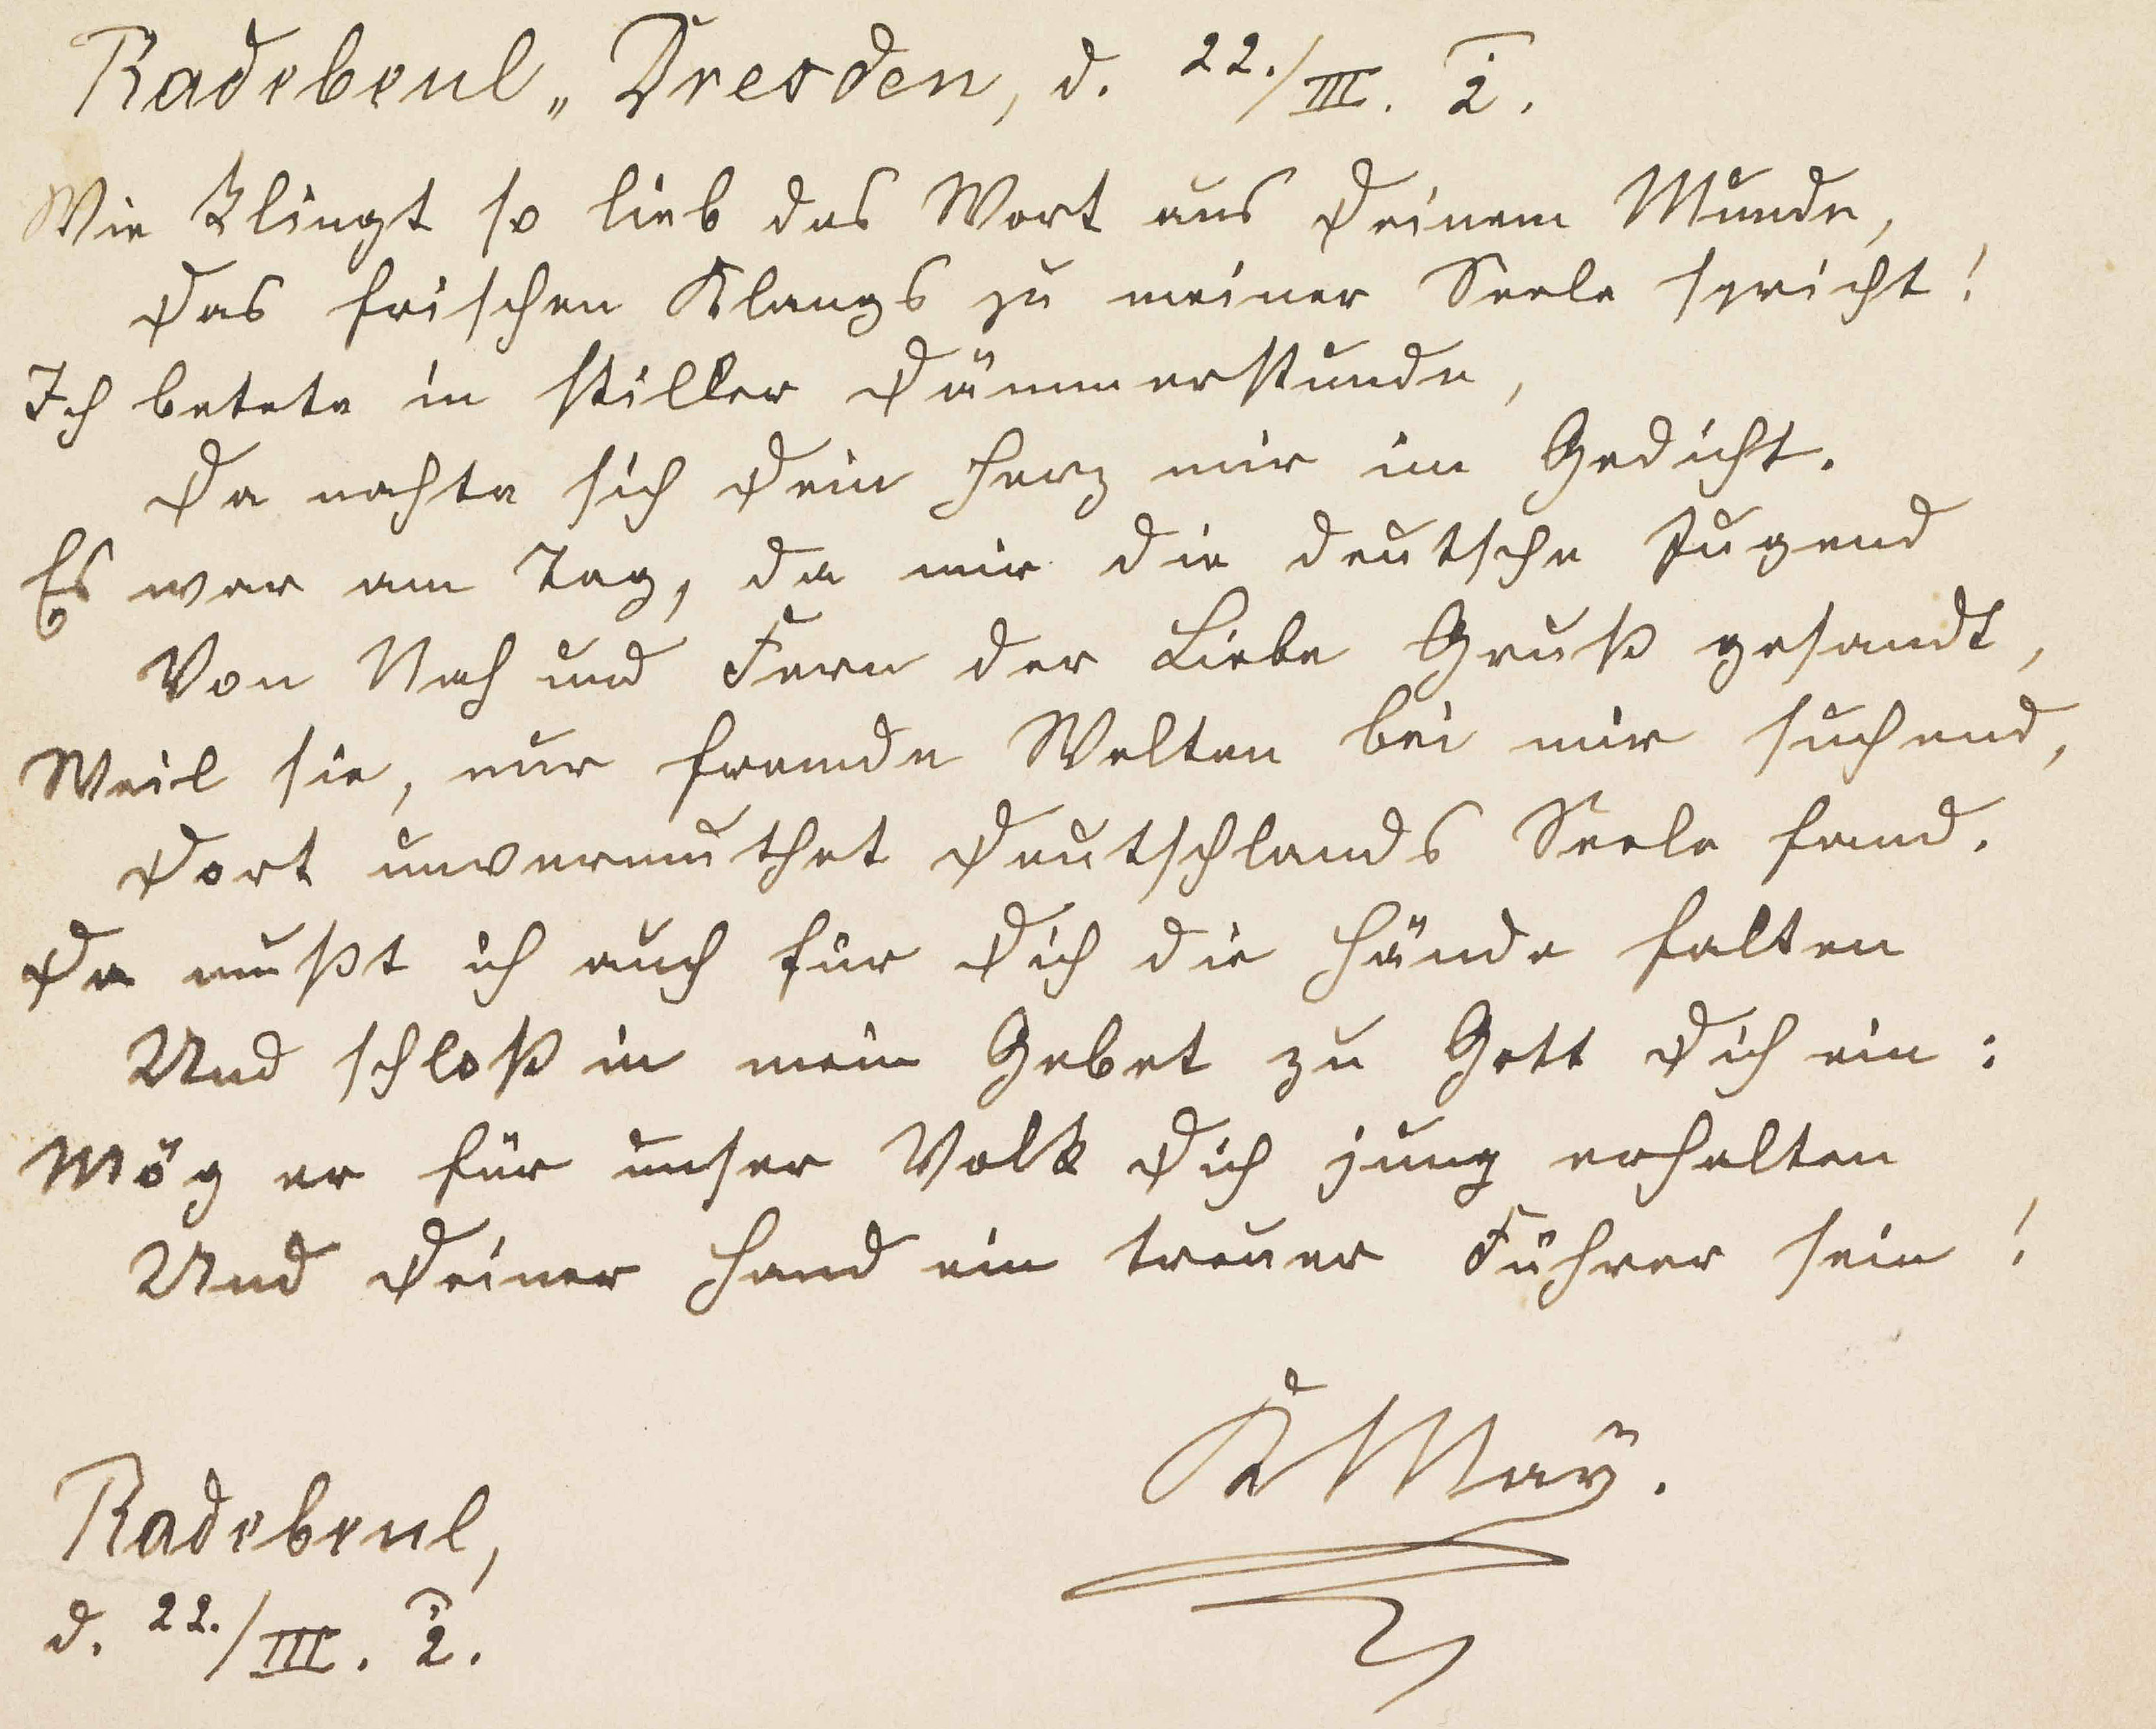 Radebeul „ Dresden, d. 22./III. 2.
Wie klingt so lieb das Wort aus Deinem Munde,
Das frischen Klangs zu meiner Seele spricht!
Ich betete in stiller Dämmerstunde,
Da nahte sich Dein Herz mir im Gedicht.
Es war am Tag, da mir die deutsche Jugend
Von Nah und Fern der Liebe Gruß gesandt,
Weil sie, nur fremde Welten bei mir suchend,
Dort unvermuthet Deutschlands Seele fand.
Da mußt ich auch für Dich die Hände falten
Und schloß in mein Gebet zu Gott Dich ein:
Mög er für unser Volk Dich jung erhalten
Und Deiner Hand ein treuer Führer sein!
K May.
Radebeul,
d. 22./III. 2.